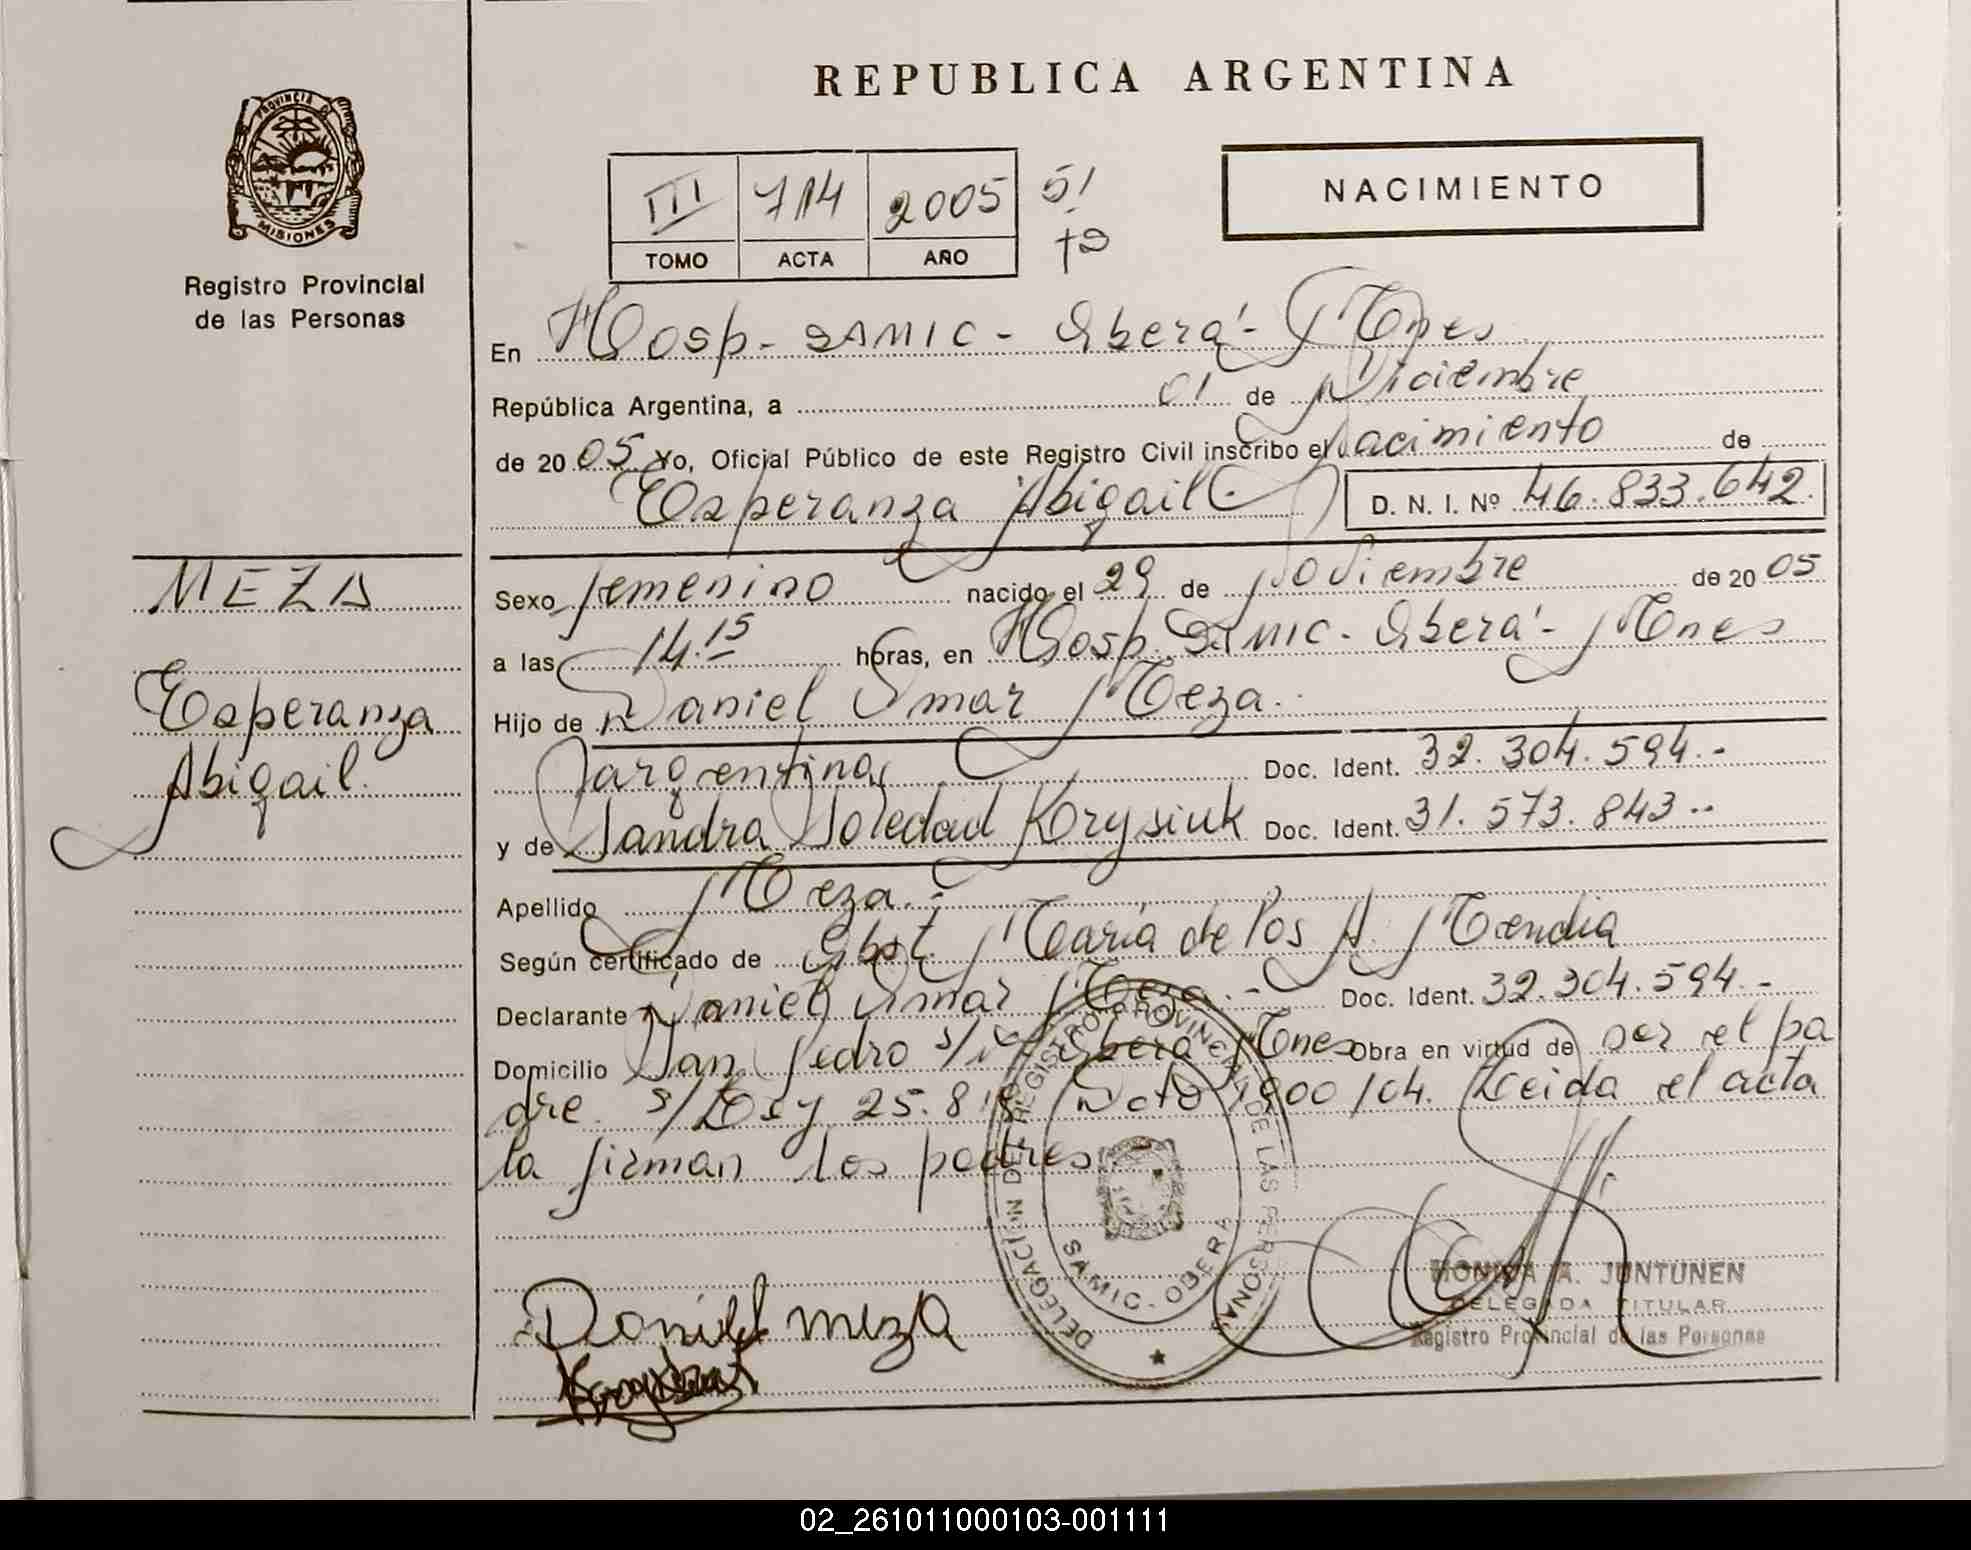 REPUBLICA ARGENTINA
PROVINCIA D
MISIONES
Registro Provincial
de las Personas
III 714 2005 51
TOMO ACTA AÑO
NACIMIENTO
En Hosp. SAMIC - Oberá - Mnes
República Argentina, a 01 de Diciembre
de 20 05 Yo, Oficial Público de este Registro Civil inscribo el Nacimiento de
Esperanza Abigail. D. N. I. Nº 46.833.642.
MEZA
Sexo femenino nacido el 29 de Noviembre de 20 05
a las 14.15 horas, en Hosp. SAMIC - Oberá - Mnes
Esperanza
Abigail.
Hijo de Daniel Omar Meza.
argentina Doc. Ident. 32.304.594.-
y de Sandra Soledad Krysiuk Doc. Ident. 31.573.843.-
Apellido Meza.-
Según certificado de Obst. María de los A. Mendia
Declarante Daniel Omar Meza.- Doc. Ident. 32.304.594.-
Domicilio San Pedro s/nº Oberá Mnes Obra en virtud de ser el pa
dre. s/Ley 25.819 Dcto 1900/04. Leida el acta
la firman los padres.
DELEGACION DEL REGISTRO PROVINCIAL DE LAS PERSONAS
SAMIC - OBERA
Daniel meza
MONICA A. JUNTUNEN
DELEGADA TITULAR
Registro Provincial de las Personas
02_261011000103-001111